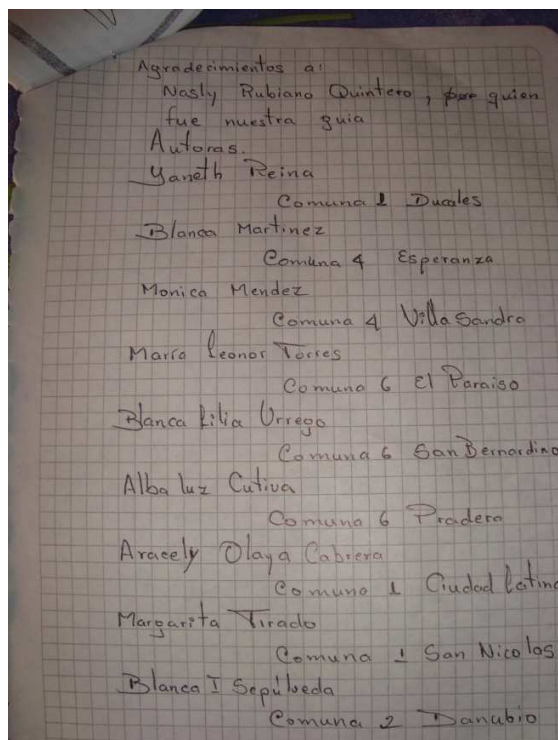 Agradecimientos a:
Nasly Rubiano Quintero, por quien
fue nuestra guia
Autoras.
Yaneth Reina
Comuna 1 Ducales
Blanca Martinez
Comuna 4 Esperanza
Monica Mendez
Comuna 4 Villa Sandra
María Leonor Torres
Comuna 6 El Paraiso
Blanca Lilia Urrego
Comuna 6 San Bernardino
Alba luz Cutiva
Comuna 6 Pradera
Aracely Olaya Cabrera
Comuna 1 Ciudad latina
Margarita Tirado
Comuna 1 San Nicolas
Blanca I Sepúlveda
Comuna 2 Danubio